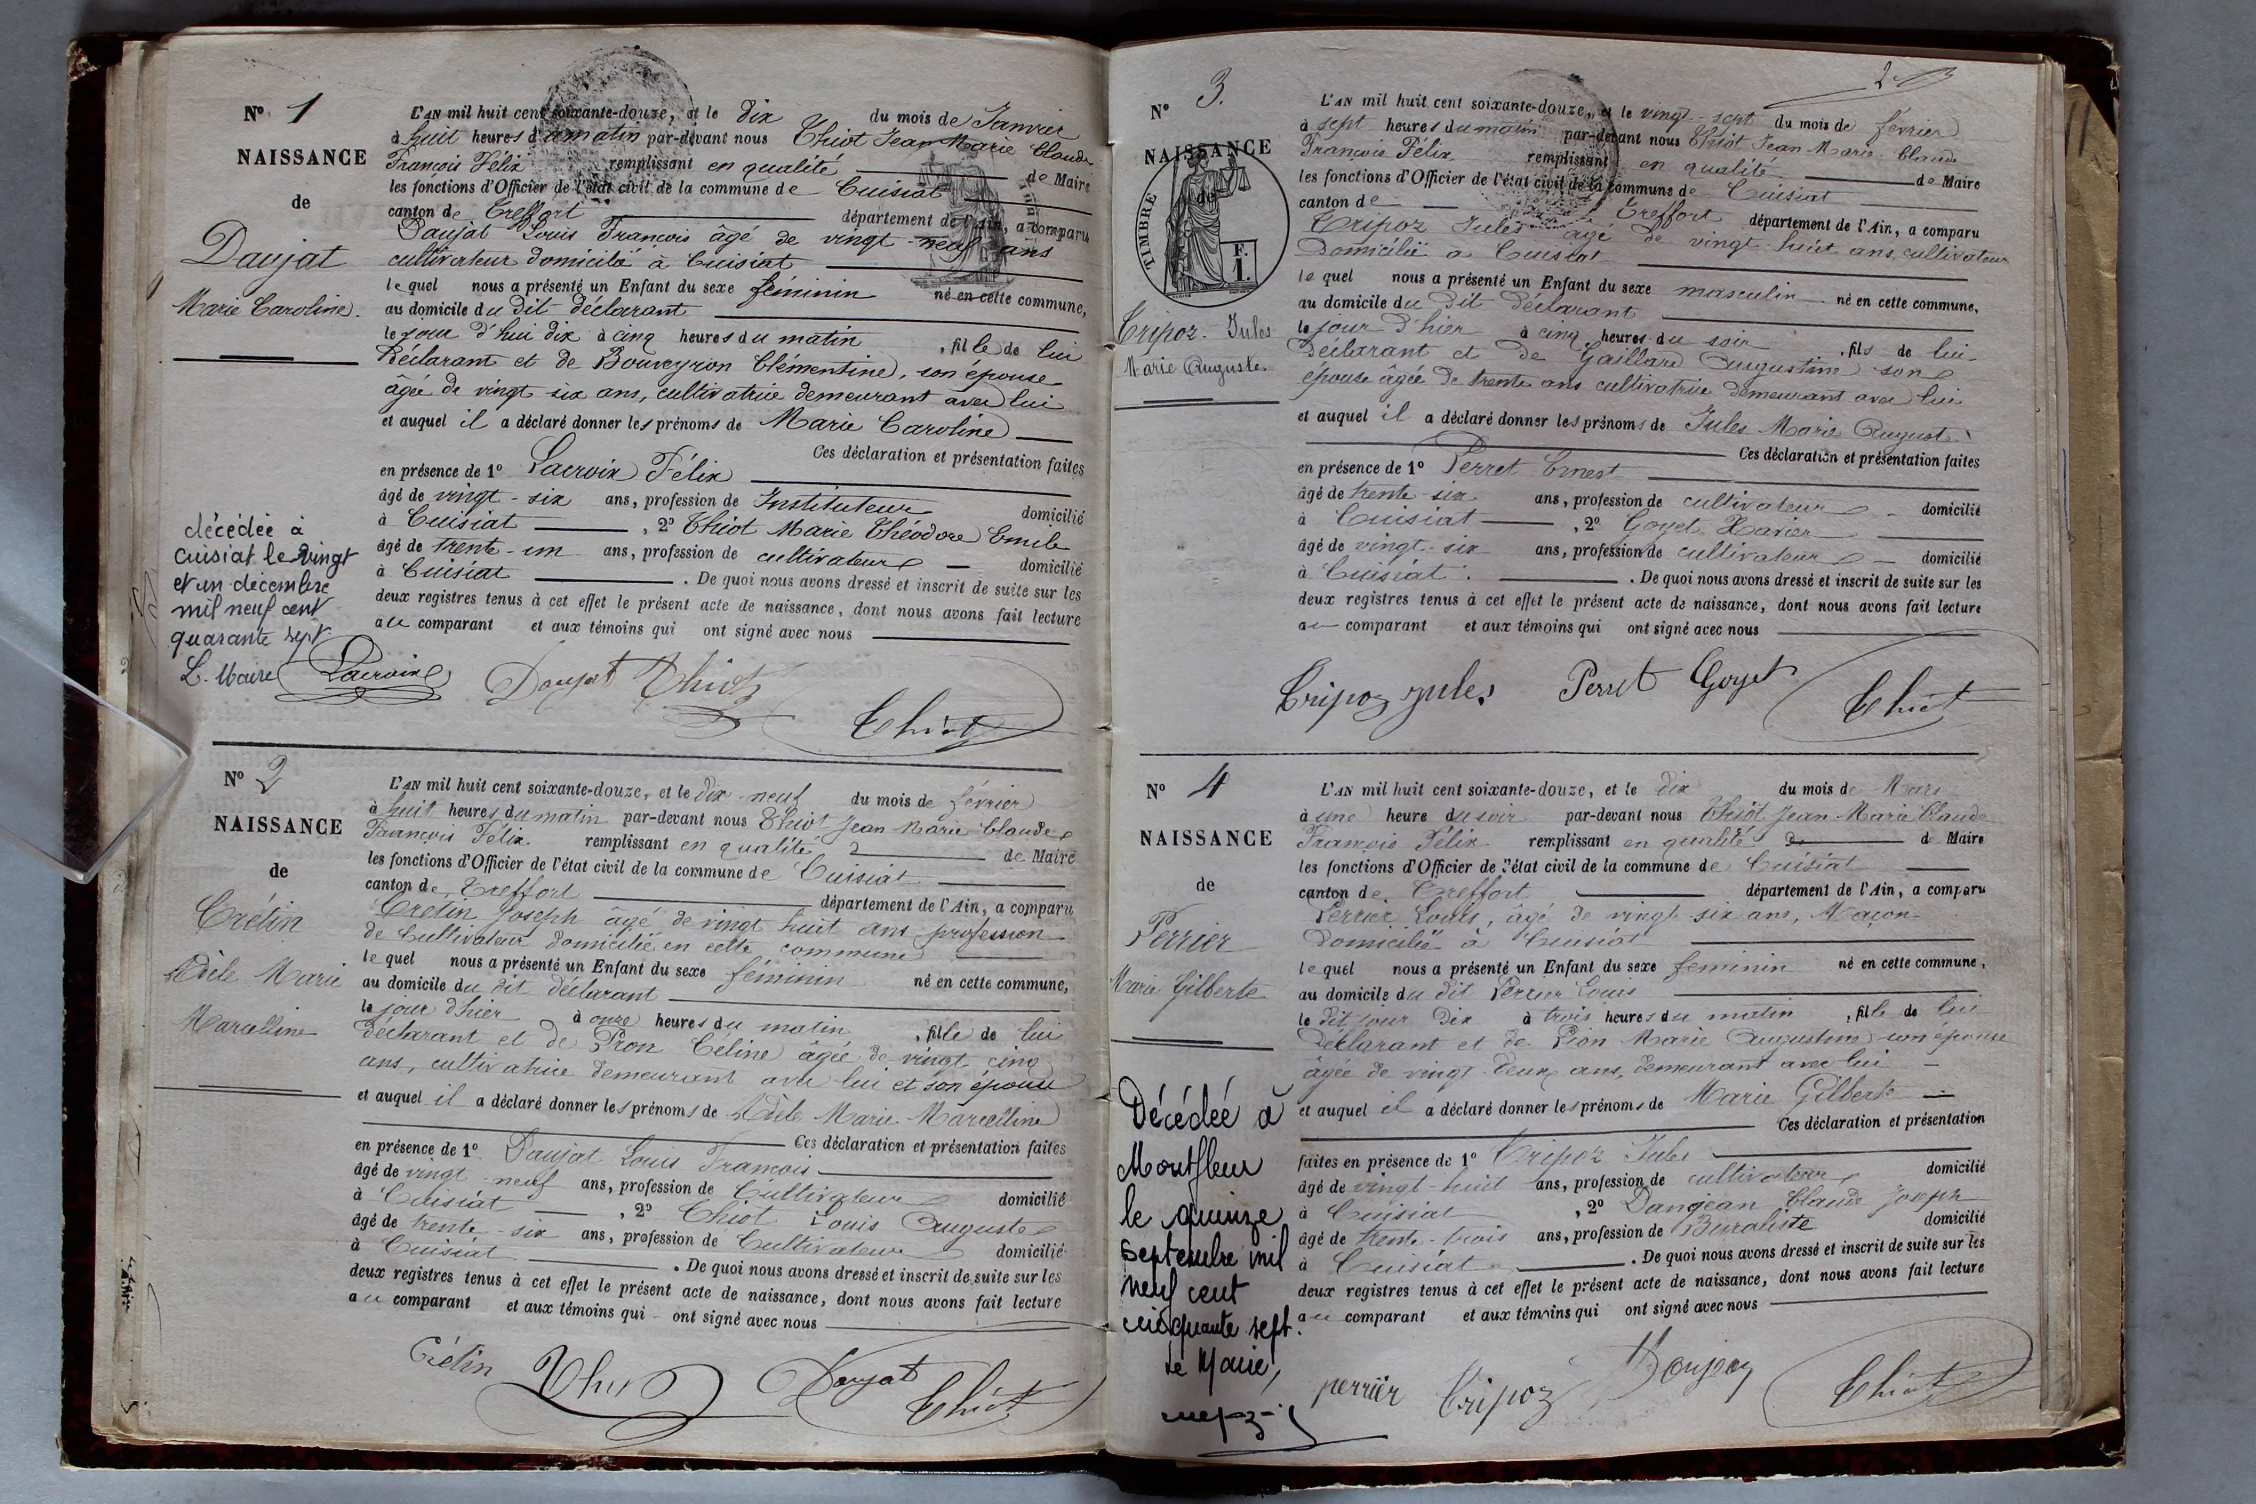 N° 1
NAISSANCE
de
Daujat
Marie Caroline.
L'AN mil huit cent soixante-douze, et le dix du mois de Janvier
à huit heures du matin par-devant nous Thiot Jean Marie Claude
François Félix remplissant en qualité de Maire
les fonctions d'Officier de l'état civil de la commune de Cuisiat
canton de Treffort département de l'Ain, a comparu
Daujat Louis François âgé de vingt-neuf ans
cultivateur domicilié à Cuisiat
lequel nous a présenté un Enfant du sexe féminin né en cette commune,
au domicile du dit déclarant
le jour d'hui dix à cinq heures du matin , fille de lui
déclarant et de Bouveyron Clémentine, son épouse
âgée de vingt six ans, cultivatrice demeurant avec lui
et auquel il a déclaré donner les prénoms de Marie Caroline
Ces déclaration et présentation faites
en présence de 1° Lacroix Félix
âgé de vingt-six ans, profession de Instituteur domicilié
à Cuisiat , 2° Thiot Marie Théodore Emile
âgé de trente-un ans, profession de cultivateur domicilié
à Cuisiat . De quoi nous avons dressé et inscrit de suite sur les
deux registres tenus à cet effet le présent acte de naissance, dont nous avons fait lecture
au comparant et aux témoins qui ont signé avec nous
décédée à
Cuisiat le vingt
et un décembre
mil neuf cent
quarante sept
L. Maire
Lacroix Daujat Thiot
Thiot
N° 2
NAISSANCE
de
Crétin
Adèle Marie
Marcelline
L'AN mil huit cent soixante-douze, et le dix-neuf du mois de février
à huit heures du matin par-devant nous Thiot Jean Marie Claude
François Félix remplissant en qualité de Maire
les fonctions d'Officier de l'état civil de la commune de Cuisiat
canton de Treffort département de l'Ain, a comparu
Crétin Joseph âgé de vingt huit ans profession
de Cultivateur domicilié en cette commune
lequel nous a présenté un Enfant du sexe féminin né en cette commune,
au domicile du dit déclarant
le jour d'hier à onze heures du matin , fille de lui
déclarant et de Pron Céline âgée de vingt cinq
ans, cultivatrice demeurant avec lui et son épouse
et auquel il a déclaré donner les prénoms de Adèle Marie Marcelline
Ces déclaration et présentation faites
en présence de 1° Daujat Louis François
âgé de vingt-neuf ans, profession de Cultivateur domicilié
à Cuisiat , 2° Thiot Louis Auguste
âgé de trente-six ans, profession de Cultivateur domicilié
à Cuisiat . De quoi nous avons dressé et inscrit de suite sur les
deux registres tenus à cet effet le présent acte de naissance, dont nous avons fait lecture
au comparant et aux témoins qui ont signé avec nous
Crétin Thiot Daujat
Thiot
N° 3.
NAISSANCE
de
TIMBRE
F.
1.
Tripoz Jules
Marie Auguste
L'AN mil huit cent soixante-douze, et le vingt-sept du mois de février
à sept heures du matin par-devant nous Thiot Jean Marie Claude
François Félix remplissant en qualité de Maire
les fonctions d'Officier de l'état civil de la commune de Cuisiat
canton de Treffort département de l'Ain, a comparu
Tripoz Jules âgé de vingt-huit ans, cultivateur
domicilié à Cuisiat
lequel nous a présenté un Enfant du sexe masculin né en cette commune,
au domicile du dit déclarant
le jour d'hier à cinq heures du soir , fils de lui
déclarant et de Gaillard Augustine son
épouse âgée de trente ans cultivatrice demeurant avec lui
et auquel il a déclaré donner les prénoms de Jules Marie Auguste
Ces déclaration et présentation faites
en présence de 1° Perret Ernest
âgé de trente-six ans, profession de cultivateur domicilié
à Cuisiat , 2° Goyet Xavier
âgé de vingt-six ans, profession de cultivateur domicilié
à Cuisiat . De quoi nous avons dressé et inscrit de suite sur les
deux registres tenus à cet effet le présent acte de naissance, dont nous avons fait lecture
au comparant et aux témoins qui ont signé avec nous
Tripoz jules Perret Goyet
Thiot
N° 4
NAISSANCE
de
Perrier
Marie Gilberte
L'AN mil huit cent soixante-douze, et le dix du mois de Mars
à une heure du soir par-devant nous Thiot Jean Marie Claude
François Félix remplissant en qualité de Maire
les fonctions d'Officier de l'état civil de la commune de Cuisiat
canton de Treffort département de l'Ain, a comparu
Perrier Louis, âgé de vingt-six ans, Maçon
domicilié à Cuisiat
lequel nous a présenté un Enfant du sexe féminin né en cette commune,
au domicile du dit Perrier Louis
le dit jour dix à trois heures du matin , fille de lui
déclarant et de Pion Marie Augustine son épouse
âgée de vingt-deux ans, demeurant avec lui
et auquel il a déclaré donner les prénoms de Marie Gilberte
Ces déclaration et présentation
faites en présence de 1° Tripoz Jules
âgé de vingt-huit ans, profession de cultivateur domicilié
à Cuisiat , 2° Dangean Claude Joseph
âgé de trente-trois ans, profession de Buraliste domicilié
à Cuisiat . De quoi nous avons dressé et inscrit de suite sur les
deux registres tenus à cet effet le présent acte de naissance, dont nous avons fait lecture
au comparant et aux témoins qui ont signé avec nous
Décédée à
Montfleur
le quinze
septembre mil
neuf cent
cinquante sept.
Le Maire,
perrier Tripoz
Thiot